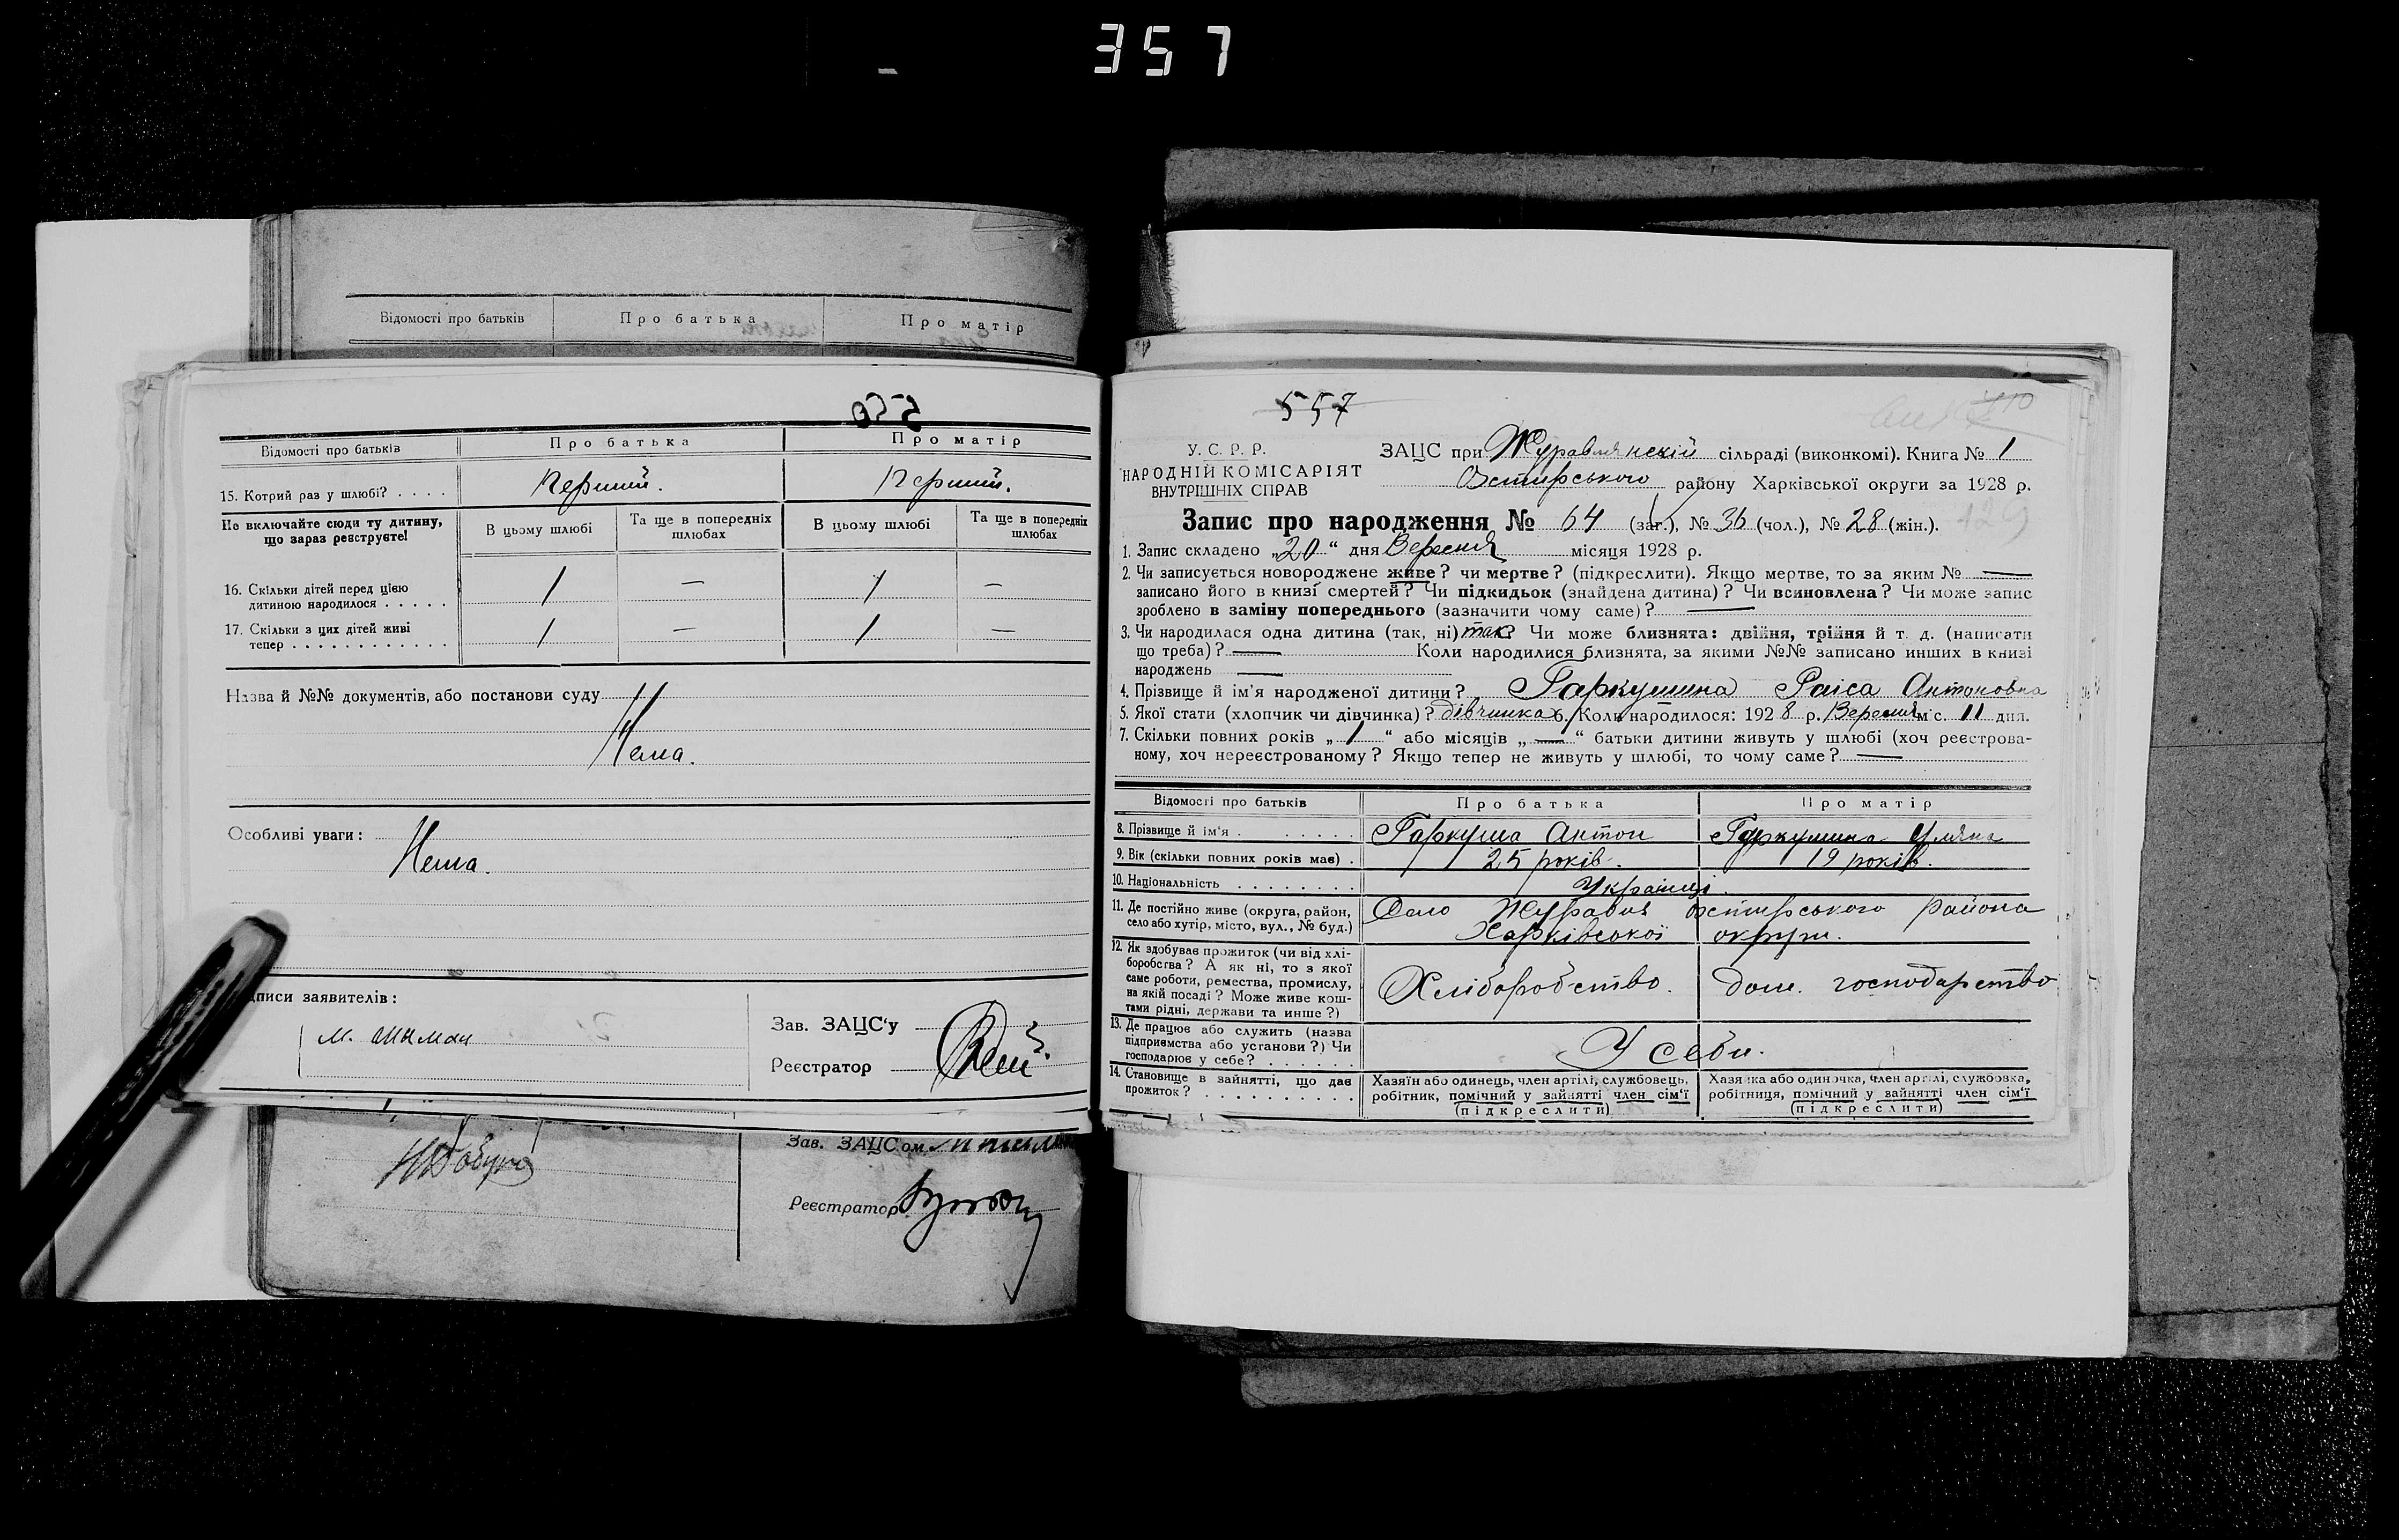 357
Відомості про батьків Про батька Про матір
Відомості про батьків Про батька Про матір
15. Котрий раз у шлюбі? . . . . Перший. Перший.
Не включайте сюди ту дитину, що зараз реєструєте!
В цьому шлюбі Та ще в попередніх шлюбах В цьому шлюбі Та ще в попередніх шлюбах
16. Скільки дітей перед цією
дитиною народилося . . . . . 1 — 1 —
17. Скільки з цих дітей живі
тепер . . . . . . . . . . . . 1 — 1 —
Назва й №№ документів, або постанови суду
Нема.
Особливі уваги:
Нема.
дписи заявителів:
Зав. ЗАЦС'у
Реєстратор
Зав. ЗАЦСом
Реєстратор
557
У. С. Р. Р.
НАРОДНІЙ КОМІСАРІЯТ
ВНУТРІШНІХ СПРАВ
ЗАЦС при Журавлянскій сільраді (виконкомі). Книга № 1
Охтирського району Харківської округи за 1928 р.
Запис про народження № 64 (заг.), № 36 (чол.), № 28 (жін.).
1. Запис складено „20“ дня Вересня місяця 1928 р.
2. Чи записується новороджене живе? чи мертве? (підкреслити). Якщо мертве, то за яким № —
записано його в книзі смертей? Чи підкидьок (знайдена дитина)? Чи всиновлена? Чи може запис
зроблено в заміну попереднього (зазначити чому саме)? —
3. Чи народилася одна дитина (так, ні) так? Чи може близнята: двійня, трійня й т. д. (написати
що треба)? — Коли народилися близнята, за якими №№ записано инших в книзі
народжень —
4. Прізвище й ім'я народженої дитини? Гаркушина Раіса Антоновна
5. Якої стати (хлопчик чи дівчинка)? дівчинка 6. Коли народилося: 1928 р. Вересня м с. 11 дня.
7. Скільки повних років „1“ або місяців „—“ батьки дитини живуть у шлюбі (хоч реєстрова-
ному, хоч нереєстрованому? Якщо тепер не живуть у шлюбі, то чому саме? —
Відомості про батьків Про батька Про матір
8. Прізвище й ім'я . . . . . . Гаркуша Антон Гаркушина Уляна
9. Вік (скільки повних років має) . 25 років. 19 років.
10. Національність . . . . . . . . Українці.
11. Де постійно живе (округа, район,
село або хутір, місто, вул., № буд.)
Село Журавня Охтирського района
Харківської округи.
12. Як здобуває прожиток (чи від хлі-
боробства? А як ні, то з якої
саме роботи, ремества, промислу,
на якій посаді? Може живе кош-
тами рідні, держави та инше?)
Хліборобство. дом. господарство
13. Де працює або служить (назва
підприємства або установи?) Чи
господарює у себе? . . . . . .
У себи.
14. Становище в зайнятті, що дає
прожиток? . . . . . . . . . .
Хазяїн або одинець, член артілі, службовець,
робітник, помічний у зайнятті член сім'ї
(підкреслити)
Хазяйка або одиночка, член артілі, службовка,
робітниця, помічний у зайнятті член сім'ї
(підкреслити)